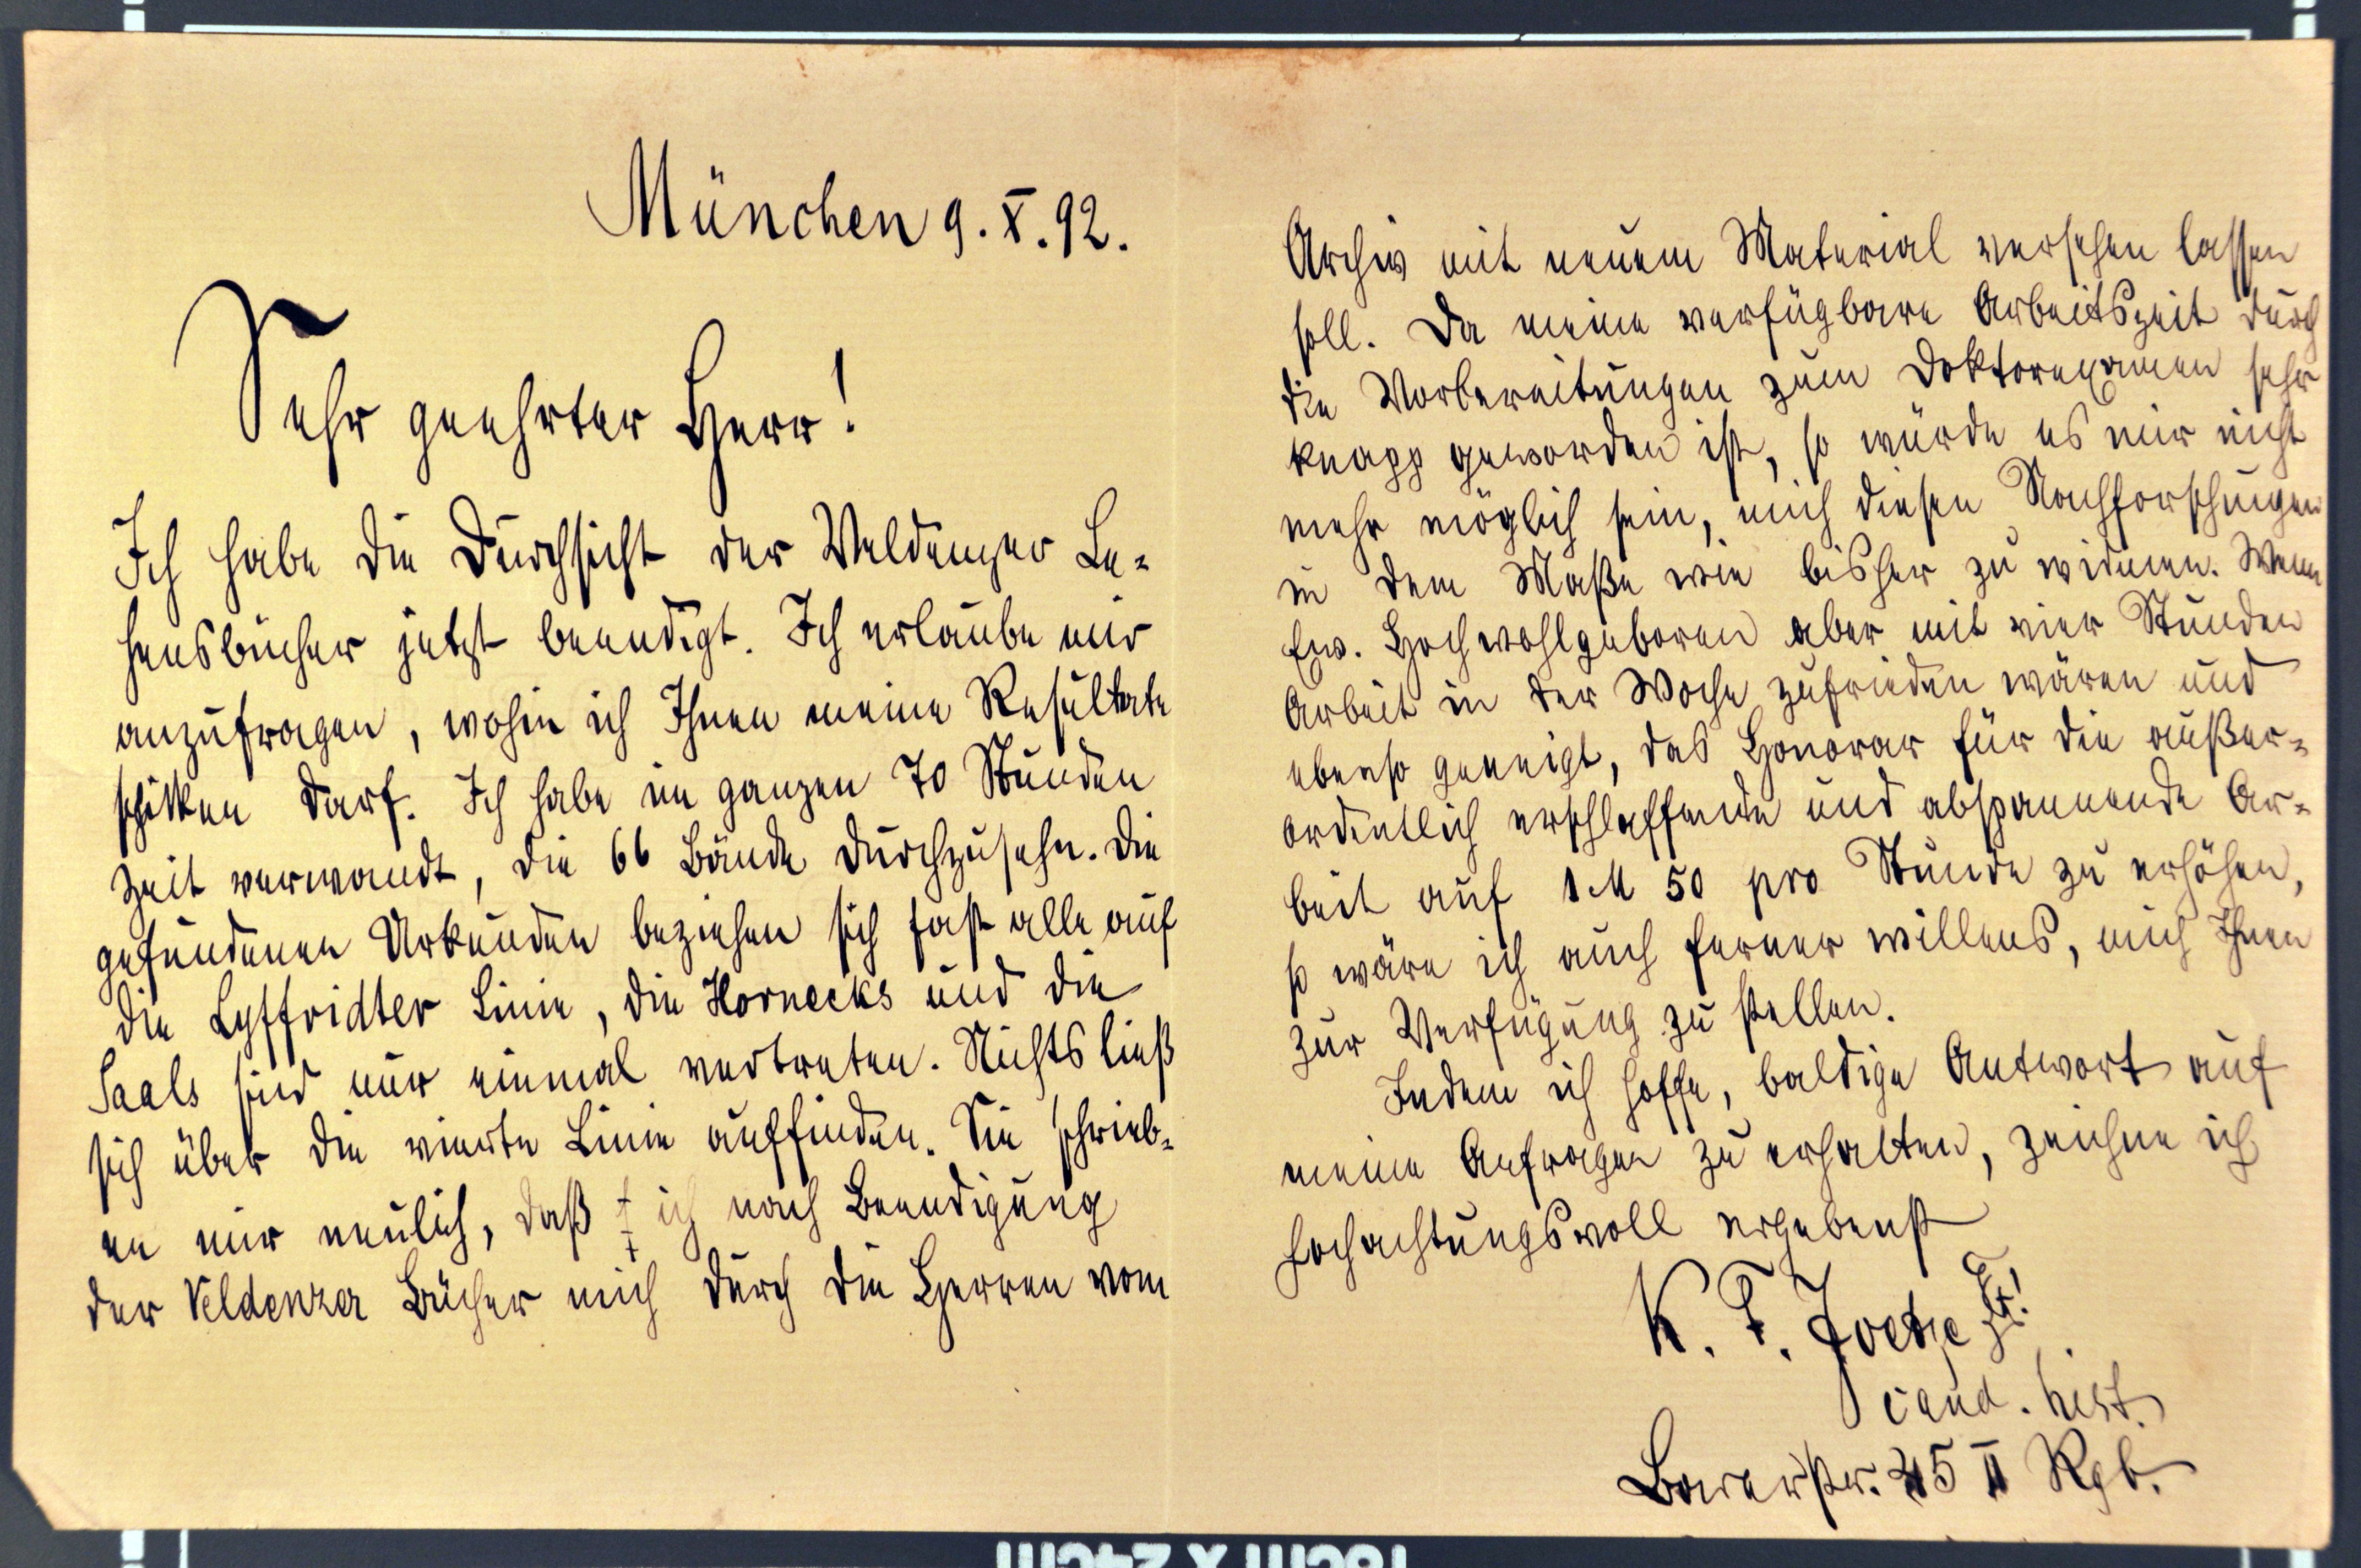 München 9. X. 92.
Sehr geehrter Herr!
Ich habe die Durchsicht der Veldenzer Le-
hensbücher jetzt beendigt. Ich erlaube mir
anzufragen, wohin ich Ihnen meine Resultate
schicken darf. Ich habe im ganzen 70 Stunden
Zeit verwandt, die 66 Bände durchzusehn. Die
gefundenen Urkunden beziehen sich fast alle auf
die Lyffridter Linie, die Hornecks und die
Saals sind nur einmal vertreten. Nichts ließ
sich über die vierte Linie auffinden. Sie schrieb-
en mir neulich, daß ich nach Beendigung
der Veldenzer Bücher mich durch die Herren vom
Archiv mit neuem Material versehen lassen
soll. Da meine verfügbare Arbeitszeit durch
die Vorbereitungen zum Doktorexamen sehr
knapp geworden ist, so würde es mir nicht
mehr möglich sein, mich diesen Nachforschungen
in dem Maße wie bisher zu widmen. Wenn
Ew. Hochwohlgeboren aber mit vier Stunden
Arbeit in der Woche zufrieden wären und
ebenso geneigt, das Honorar für die außer-
ordentlich erschlaffende und abspannende Ar-
beit auf 1 M 50 pro Stunde zu erhöhen,
so wäre ich auch ferner willens, mich Ihnen
zur Verfügung zu stellen.
Indem ich hoffe, baldige Antwort auf
meine Anfragen zu erhalten, zeichne ich
hochachtungsvoll ergebenst
K. F. Joetze
cand. hist.
45 II Rgb.
18cm x 24cm